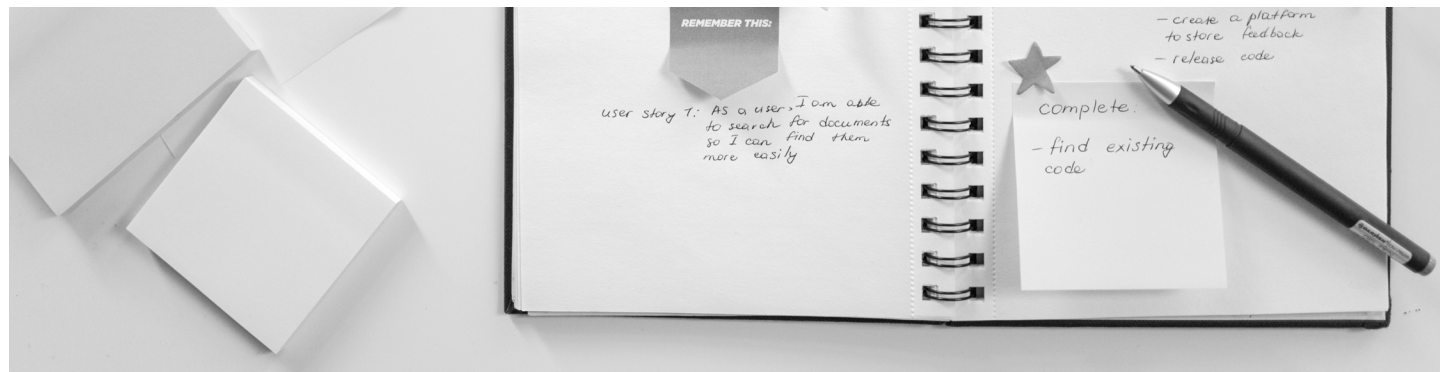 REMEMBER THIS:
user story 1: As a user, I am able
to search for documents
so I can find them
more easily
- create a platform
to store feedback
- release code
complete:
- find existing
code